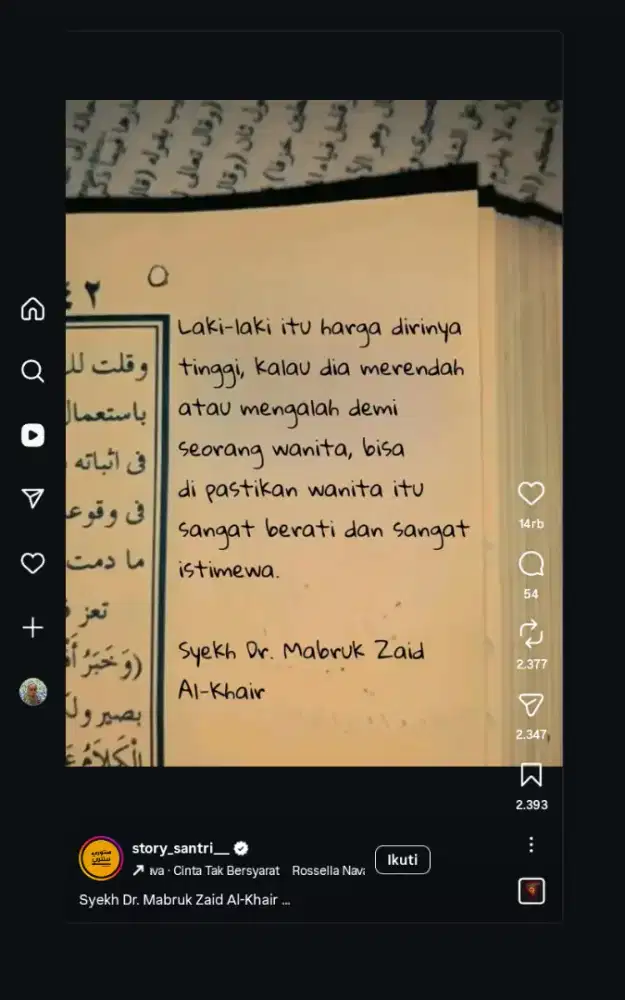 ٤٢
وقلت لل
باستعمال
فى اثباته
فى وقوع
ما دمت
تعز
بصير ول
Laki-laki itu harga dirinya
tinggi, kalau dia merendah
atau mengalah demi
seorang wanita, bisa
di pastikan wanita itu
sangat berati dan sangat
istimewa.
Syekh Dr. Mabruk Zaid
Al-Khair
14rb
54
2.377
2.347
2.393
story_santri__
iva · Cinta Tak Bersyarat Rossella Nava
Ikuti
Syekh Dr. Mabruk Zaid Al-Khair ...